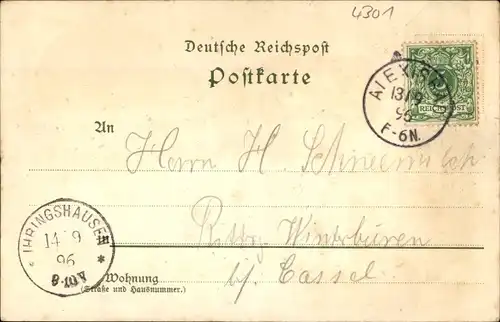 4301
Deutsche Reichspost
Postkarte
ALEXISBAD
13/9
96
5-6N.
REICHSPOST
An
Herrn H. Schneemilch
Rittg. Winterbüren
bj. Cassel
IHRINGSHAUSEN
14 9
96
9-10V
Wohnung
(Straße und Hausnummer.)